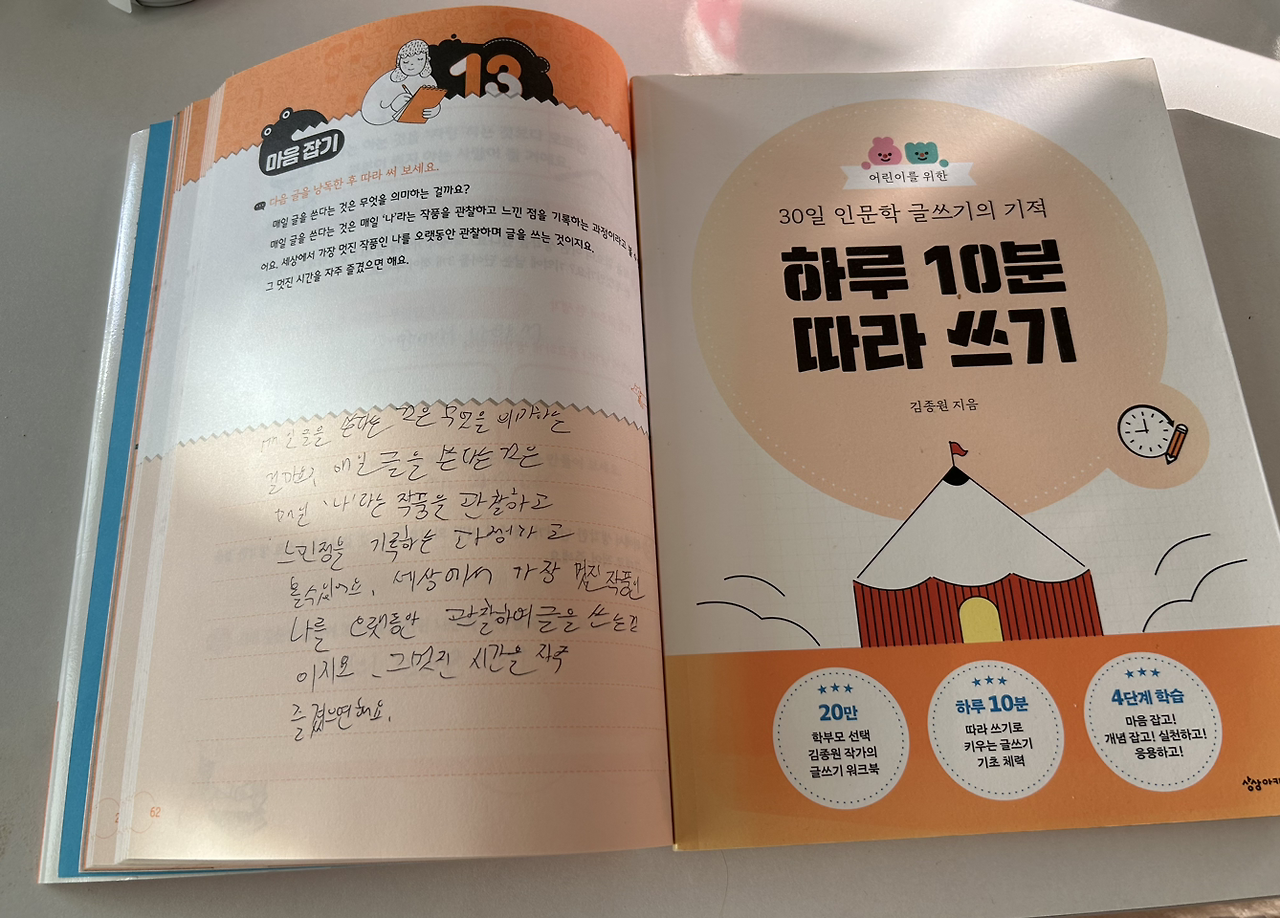 13
마음 잡기
다음 글을 낭독한 후 따라 써 보세요.
매일 글을 쓴다는 것은 무엇을 의미하는 걸까요?
매일 글을 쓴다는 것은 매일 ‘나’라는 작품을 관찰하고 느낀 점을 기록하는 과정이라고 볼
어요. 세상에서 가장 멋진 작품인 나를 오랫동안 관찰하며 글을 쓰는 것이지요.
그 멋진 시간을 자주 즐겼으면 해요.
매일 글을 쓴다는 것은 무엇을 의미하는
걸까요? 매일 글을 쓴다는 것은
매일 '나'라는 작품을 관찰하고
느낀점을 기록하는 과정라고
볼수있어요. 세상에서 가장 멋진 작품인
나를 오랫동안 관찰하며 글을 쓰는것
이지요. 그멋진 시간을 자주
즐겼으면해요.
62
어린이를 위한
30일 인문학 글쓰기의 기적
하루 10분
따라 쓰기
김종원 지음
20만
학부모 선택
김종원 작가의
글쓰기 워크북
하루 10분
따라 쓰기로
키우는 글쓰기
기초 체력
4단계 학습
마음 잡고!
개념 잡고! 실천하고!
응용하고!